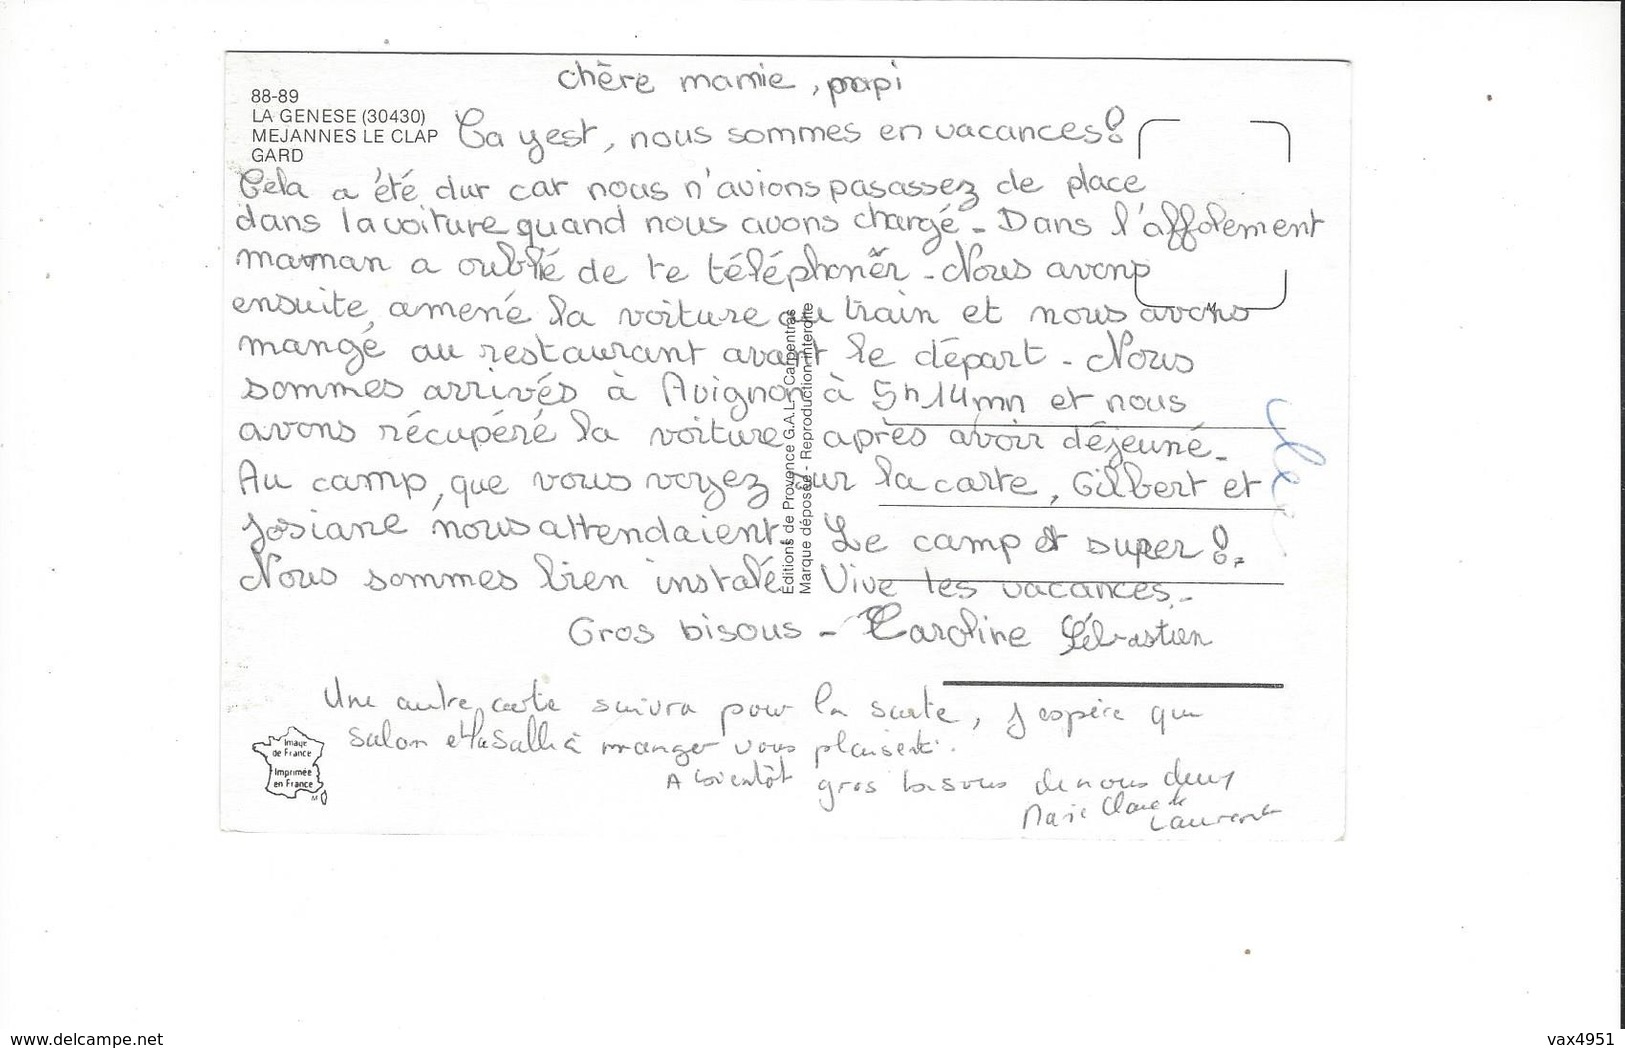 chère mamie, papi
88-89
LA GENESE (30430)
MEJANNES LE CLAP
GARD
Ca yest, nous sommes en vacances!
Cela a été dur car nous n'avions pas assez de place
dans la voiture quand nous avons chargé - Dans l'affolement
maman a oublié de te téléphoner - Nous avons
ensuite, amené la voiture au train et nous avons
mangé au restaurant avant le départ - Nous
sommes arrivés à Avignon à 5h14mn et nous
avons récupéré la voiture après avoir déjeuné -
Au camp, que vous voyez sur la carte, Gilbert et
Josiane nous attendaient. Le camp et super!
Nous sommes bien instalé. Vive les vacances -
Gros bisous - Caroline Sébastien
Editions de Provence G.A.L. - Carpentras
Marque déposée - Reproduction interdite
Une autre carte suivra pour la suite, j espère que
salon et la Salle à manger vous plaisent.
A bientôt gros bisous de nous deux
Marie Claude
Laurent
Image
de France
Imprimée
en France
www.delcampe.net
vax4951